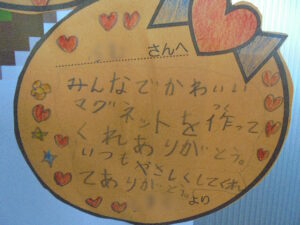 さんへ
みんなでかわいい
マグネットを作って
つく
くれありがとう。
いつもやさしくしてくれ
てありがとう。
より